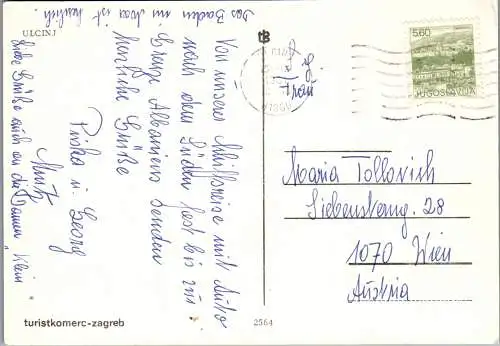 ULCINJ
Von unserer Schiffsreise mit Auto
nach dem Süden fast bis zur
Grenze Albaniens senden
herzliche Grüße
Georg
Liebe Grüße auch an die Damen Klein
Das Baden im Meer ist herrlich.
turistkomerc-zagreb
2564
5.60
JUGOSLAVIJA
Frau
Maria Tollovich
Siebensterng. 28
1070 Wien
Austria